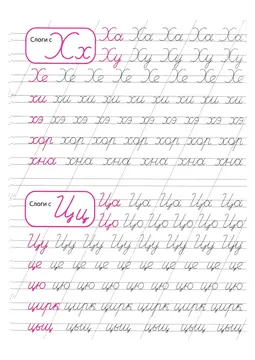 Слоги с Хх
Ха Ха Ха Ха Ха
Ху Ху Ху Ху Ху
Хе Хе Хе Хе Хе Хе Хе
хи хи хи хи хи хи хи хи
хэ хэ хэ хэ хэ хэ хэ хэ
хор хор хор хор хор хор
хна хна хна хна хна хна
Слоги с Цц
Ца Ца Ца Ца Ца
Цо Цо Цо Цо Цо Цо
Цу Цу Цу Цу Цу Цу Цу Цу
це це це це це це це
цю цю цю цю цю цю цю
цирк цирк цирк цирк цирк
цыщ цыщ цыщ цыщ цыщ